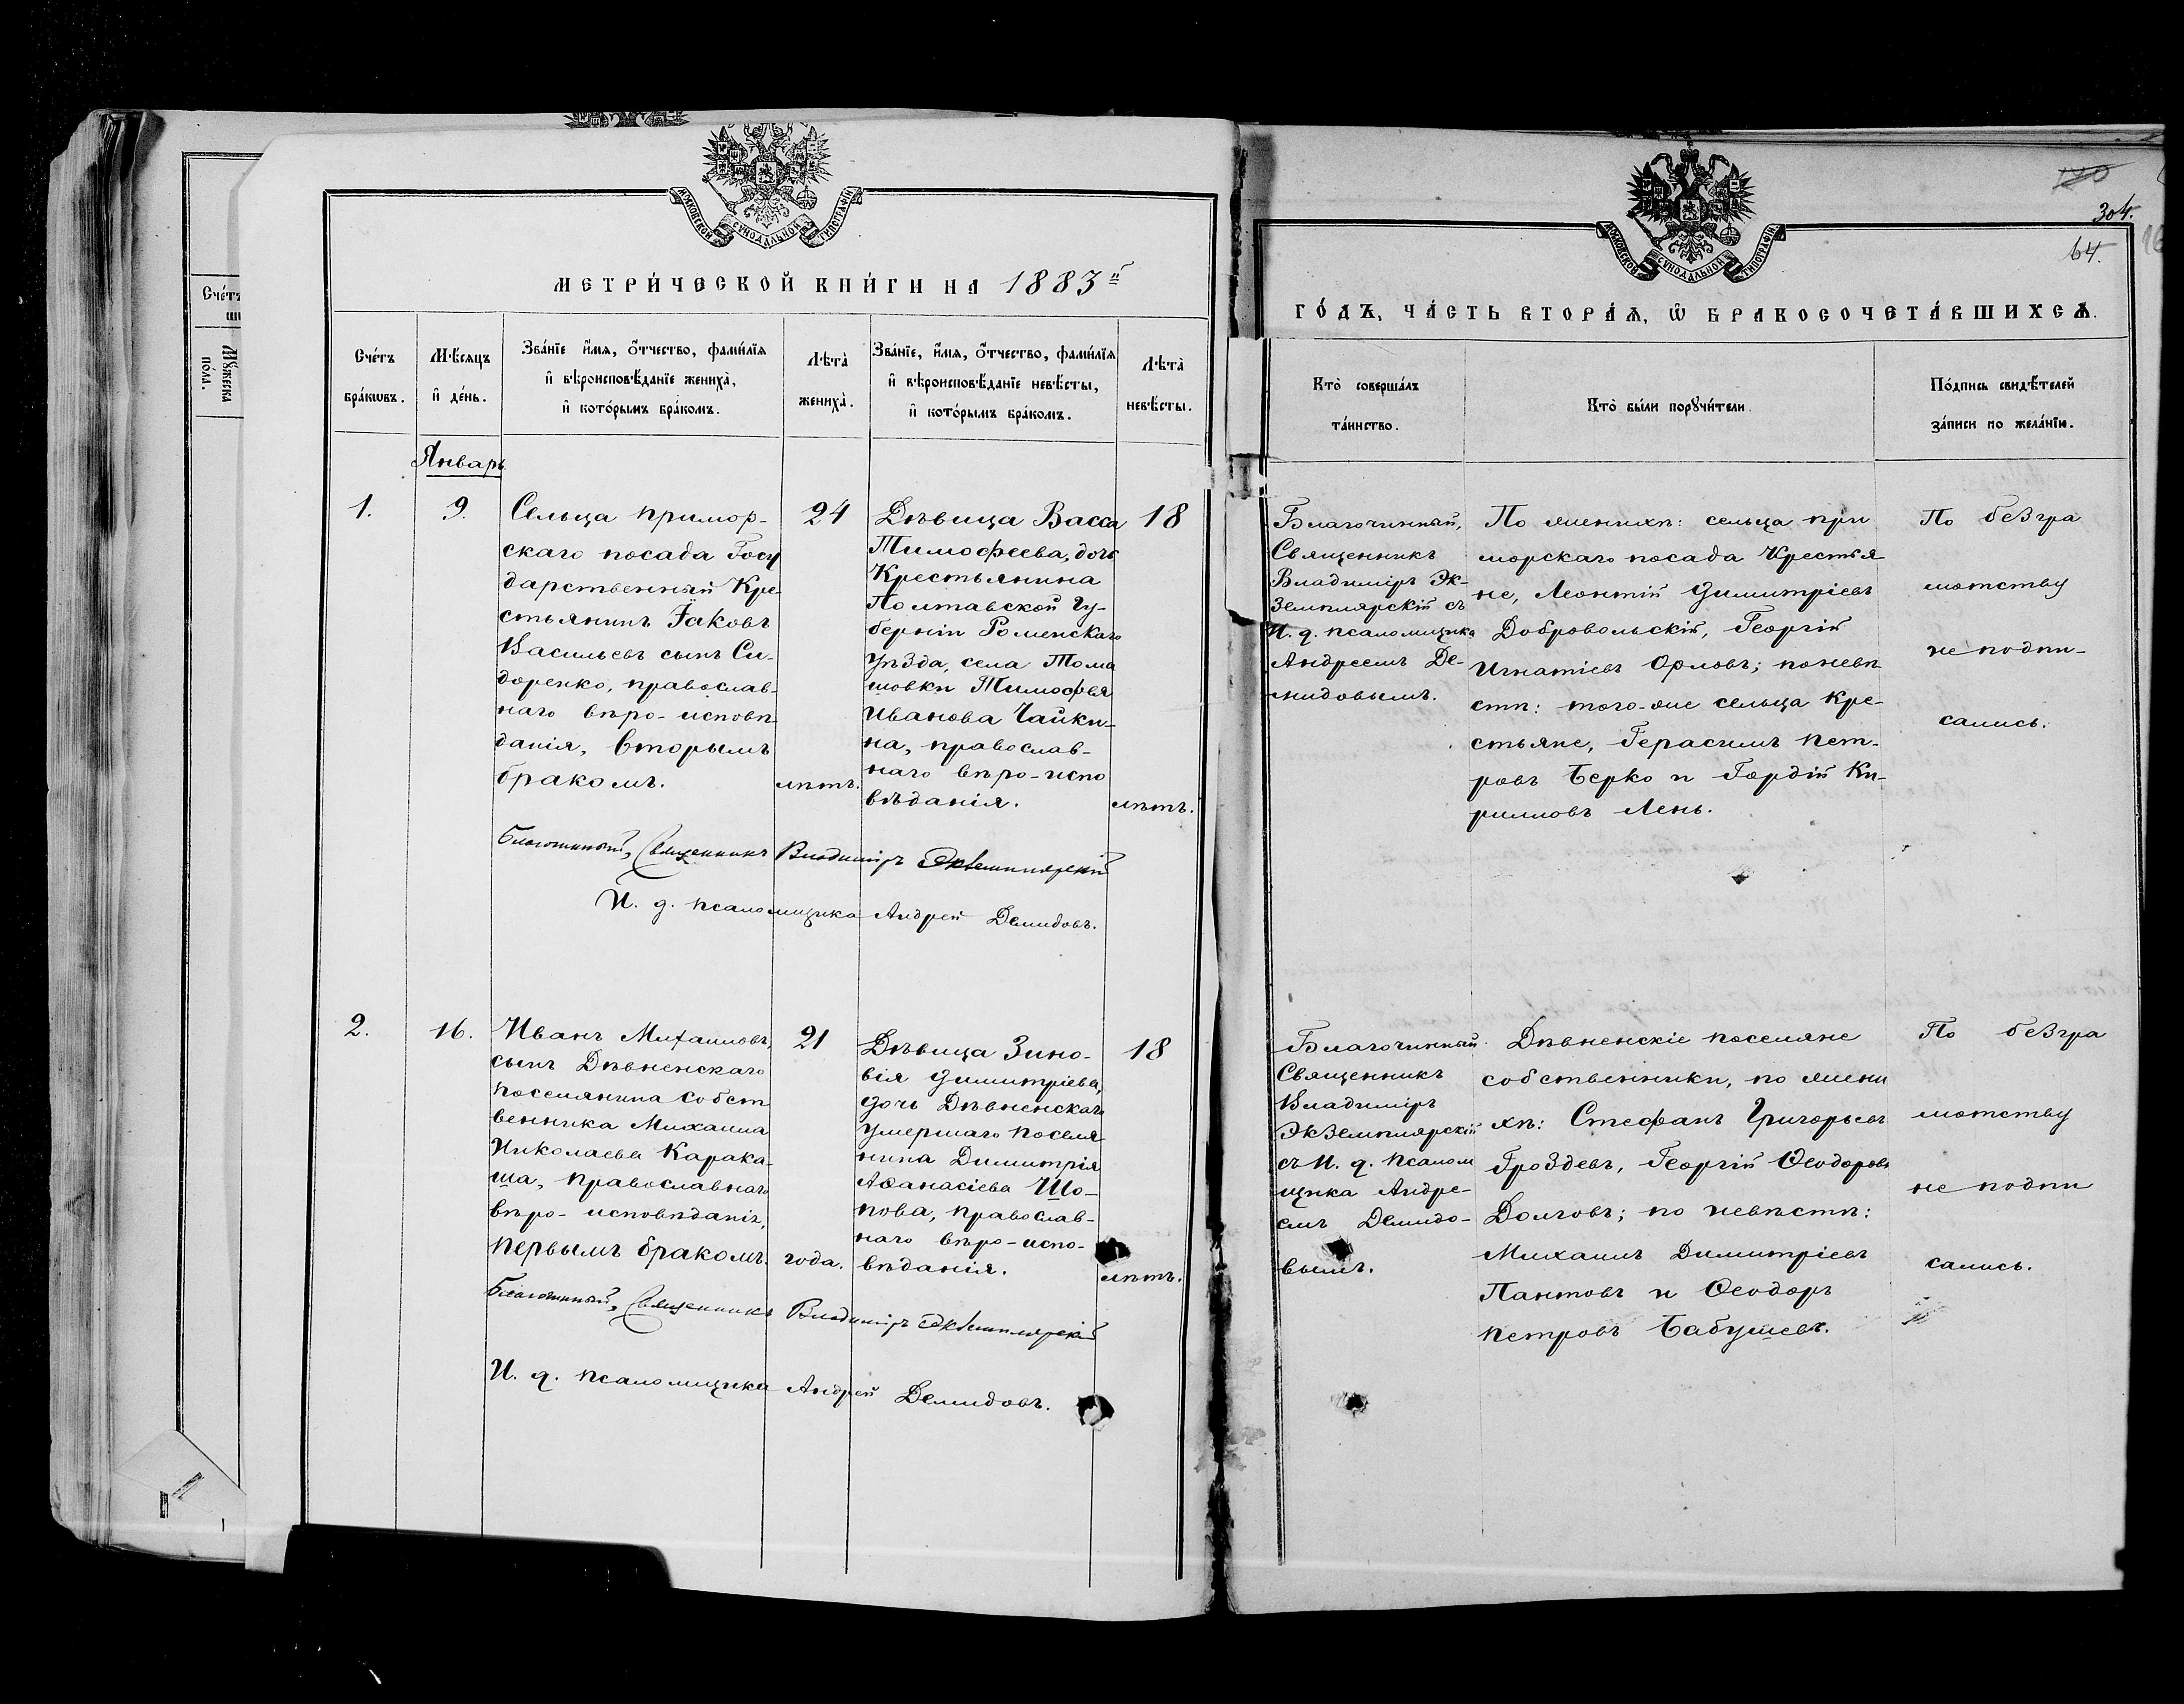 МОСКОВСКОЙ СѴНОДАЛЬНОЙ ТИПОГРАФІИ
МЕТРИ́ЧЕСКОЙ КНИ́ГИ НА 1883 й
Сче́тъ
Мꙋ́жеска
по́ла.
Сче́тъ
бра́кѡвъ.
Мѣ́сяцъ
и҆ де́нь.
Зва́нїе и҆́мѧ, ѻ҆́тчество, фами́лїѧ
и҆ вѣроисповѣ́данїе жениха̀,
и҆ кото́рымъ бра́комъ.
Лѣта̀
жениха̀.
Зва́нїе, и҆́мѧ, ѻ҆́тчество, фами́лїѧ
и҆ вѣроисповѣ́данїе невѣ́сты,
и҆ кото́рымъ бра́комъ.
Лѣта̀
невѣ́сты.
Январь
1.
9.
Сельца примор-
скаго посада Госу
дарственный Кре-
стьянинъ Іаковъ
Васильевъ сынъ Си-
доренко, православ-
наго вѣро-исповѣ
данія, вторымъ
бракомъ.
24
лѣтъ.
Дѣвица Васса
Тимофеева, дочь
Крестьянина
Полтавской Гу-
берніи Роменскаго
уѣзда, села Тома
шовки Тимофѣя
Иванова Чайки-
на, православ-
наго вѣро-испо
вѣданія.
18
лѣтъ.
Благочинный, Священникъ Владиміръ Экземплярскій
И. д. псаломщика Андрей Демидовъ.
2.
16.
Иванъ Михаиловъ,
сынъ Дѣвненскаго
поселянина собст
венника Михаила
Николаева Карака-
ша, православнаго
вѣро-исповѣданія,
первымъ бракомъ.
21
года.
Дѣвица Зино-
вія Димитріева,
дочь Дѣвненскаго
умершаго поселя
нина Димитрія
Аѳанасіева Шо-
пова, православ-
наго вѣро-испо-
вѣданія.
18
лѣтъ.
Благочинный, Священникъ Владиміръ Экземплярскій
И. д. псаломщика Андрей Демидовъ.
МОСКОВСКОЙ СѴНОДАЛЬНОЙ ТИПОГРАФІИ
304.
64.
ГО́ДЪ, ЧА́СТЬ ВТОРА́Ѧ, Ѡ҆ БРАКОСОЧЕТА́ВШИХСѦ.
Кто̀ соверша́лъ
та́инство.
Кто̀ бы́ли порꙋчи́тели.
По́дпись свидѣ́телей
за́писи по жела́нїю.
Благочинный,
Священникъ
Владиміръ Эк-
земплярскій съ
И. д. псаломщика
Андреемъ Де-
мидовымъ.
По женихѣ: сельца при
морскаго посада Крестья
не, Леонтій Димитріевъ
Добровольскій, Георгій
Игнатіевъ Орловъ; по невѣ
стѣ: того-же сельца Кре-
стьяне, Герасимъ Пет-
ровъ Берко и Гордій Ки-
рилловъ Лень.
По безгра
мотству
не подпи-
сались.
Благочинный
Священникъ
Владиміръ
Экземплярскій
съ И. д. псалом
щика Андре-
емъ Демидо-
вымъ.
Дѣвненскіе поселяне
собственники, по жени
хѣ: Стефанъ Григорьевъ
Гроздевъ, Георгій Ѳеодоровъ
Долговъ; по невѣстѣ:
Михаилъ Димитріевъ
Пантовъ и Ѳеодоръ
Петровъ Бабушевъ.
По безгра
мотству
не подпи
сались.